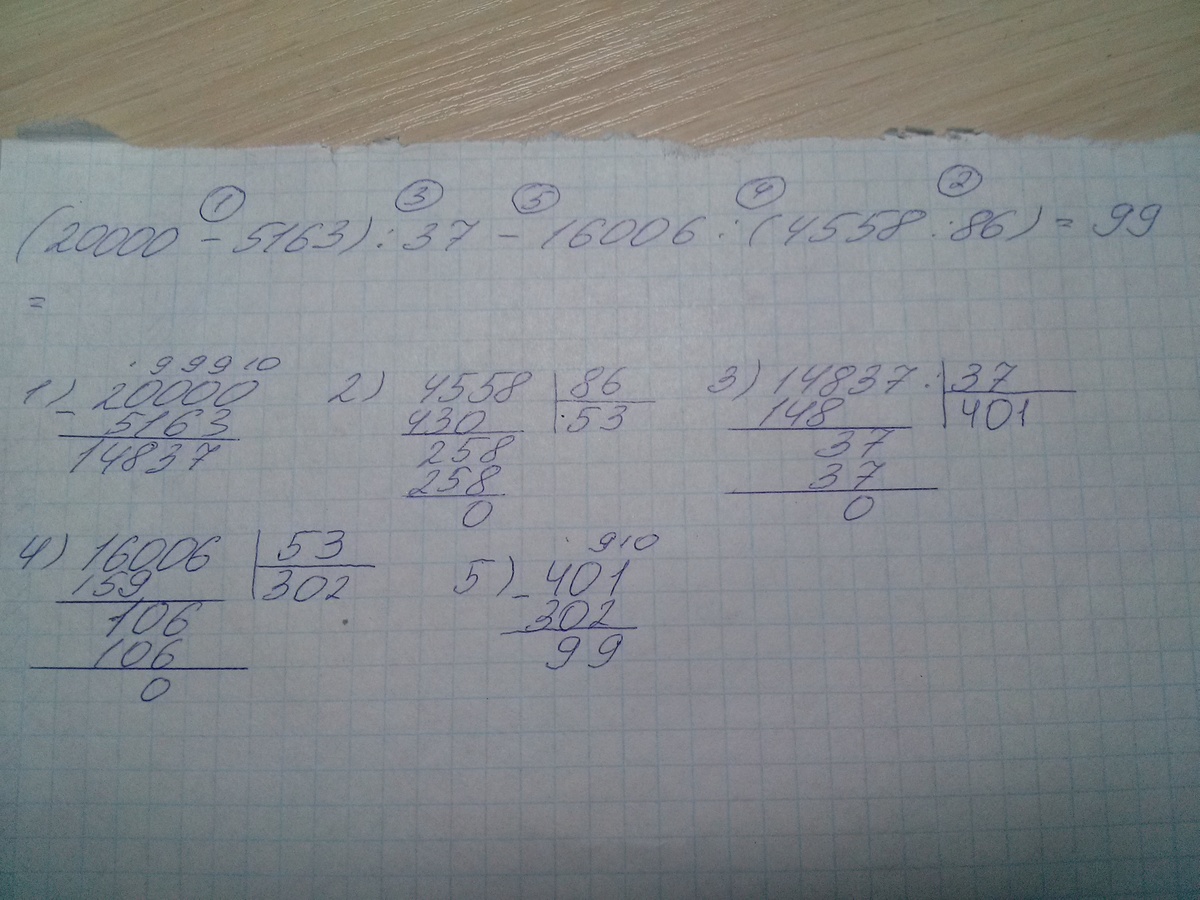 ① ③ ⑤ ④ ②
(20000 - 5163) : 37 - 16006 : (4558 : 86) = 99
=
. 9 9 9 10
1) - 20000
5163
14837
2) 4558 | 86
430 | 53
258
258
0
3) 14837 : | 37
148 | 401
37
37
0
4) 16006 | 53
159 | 302
106
106
0
. 9 10
5) - 401
302
99